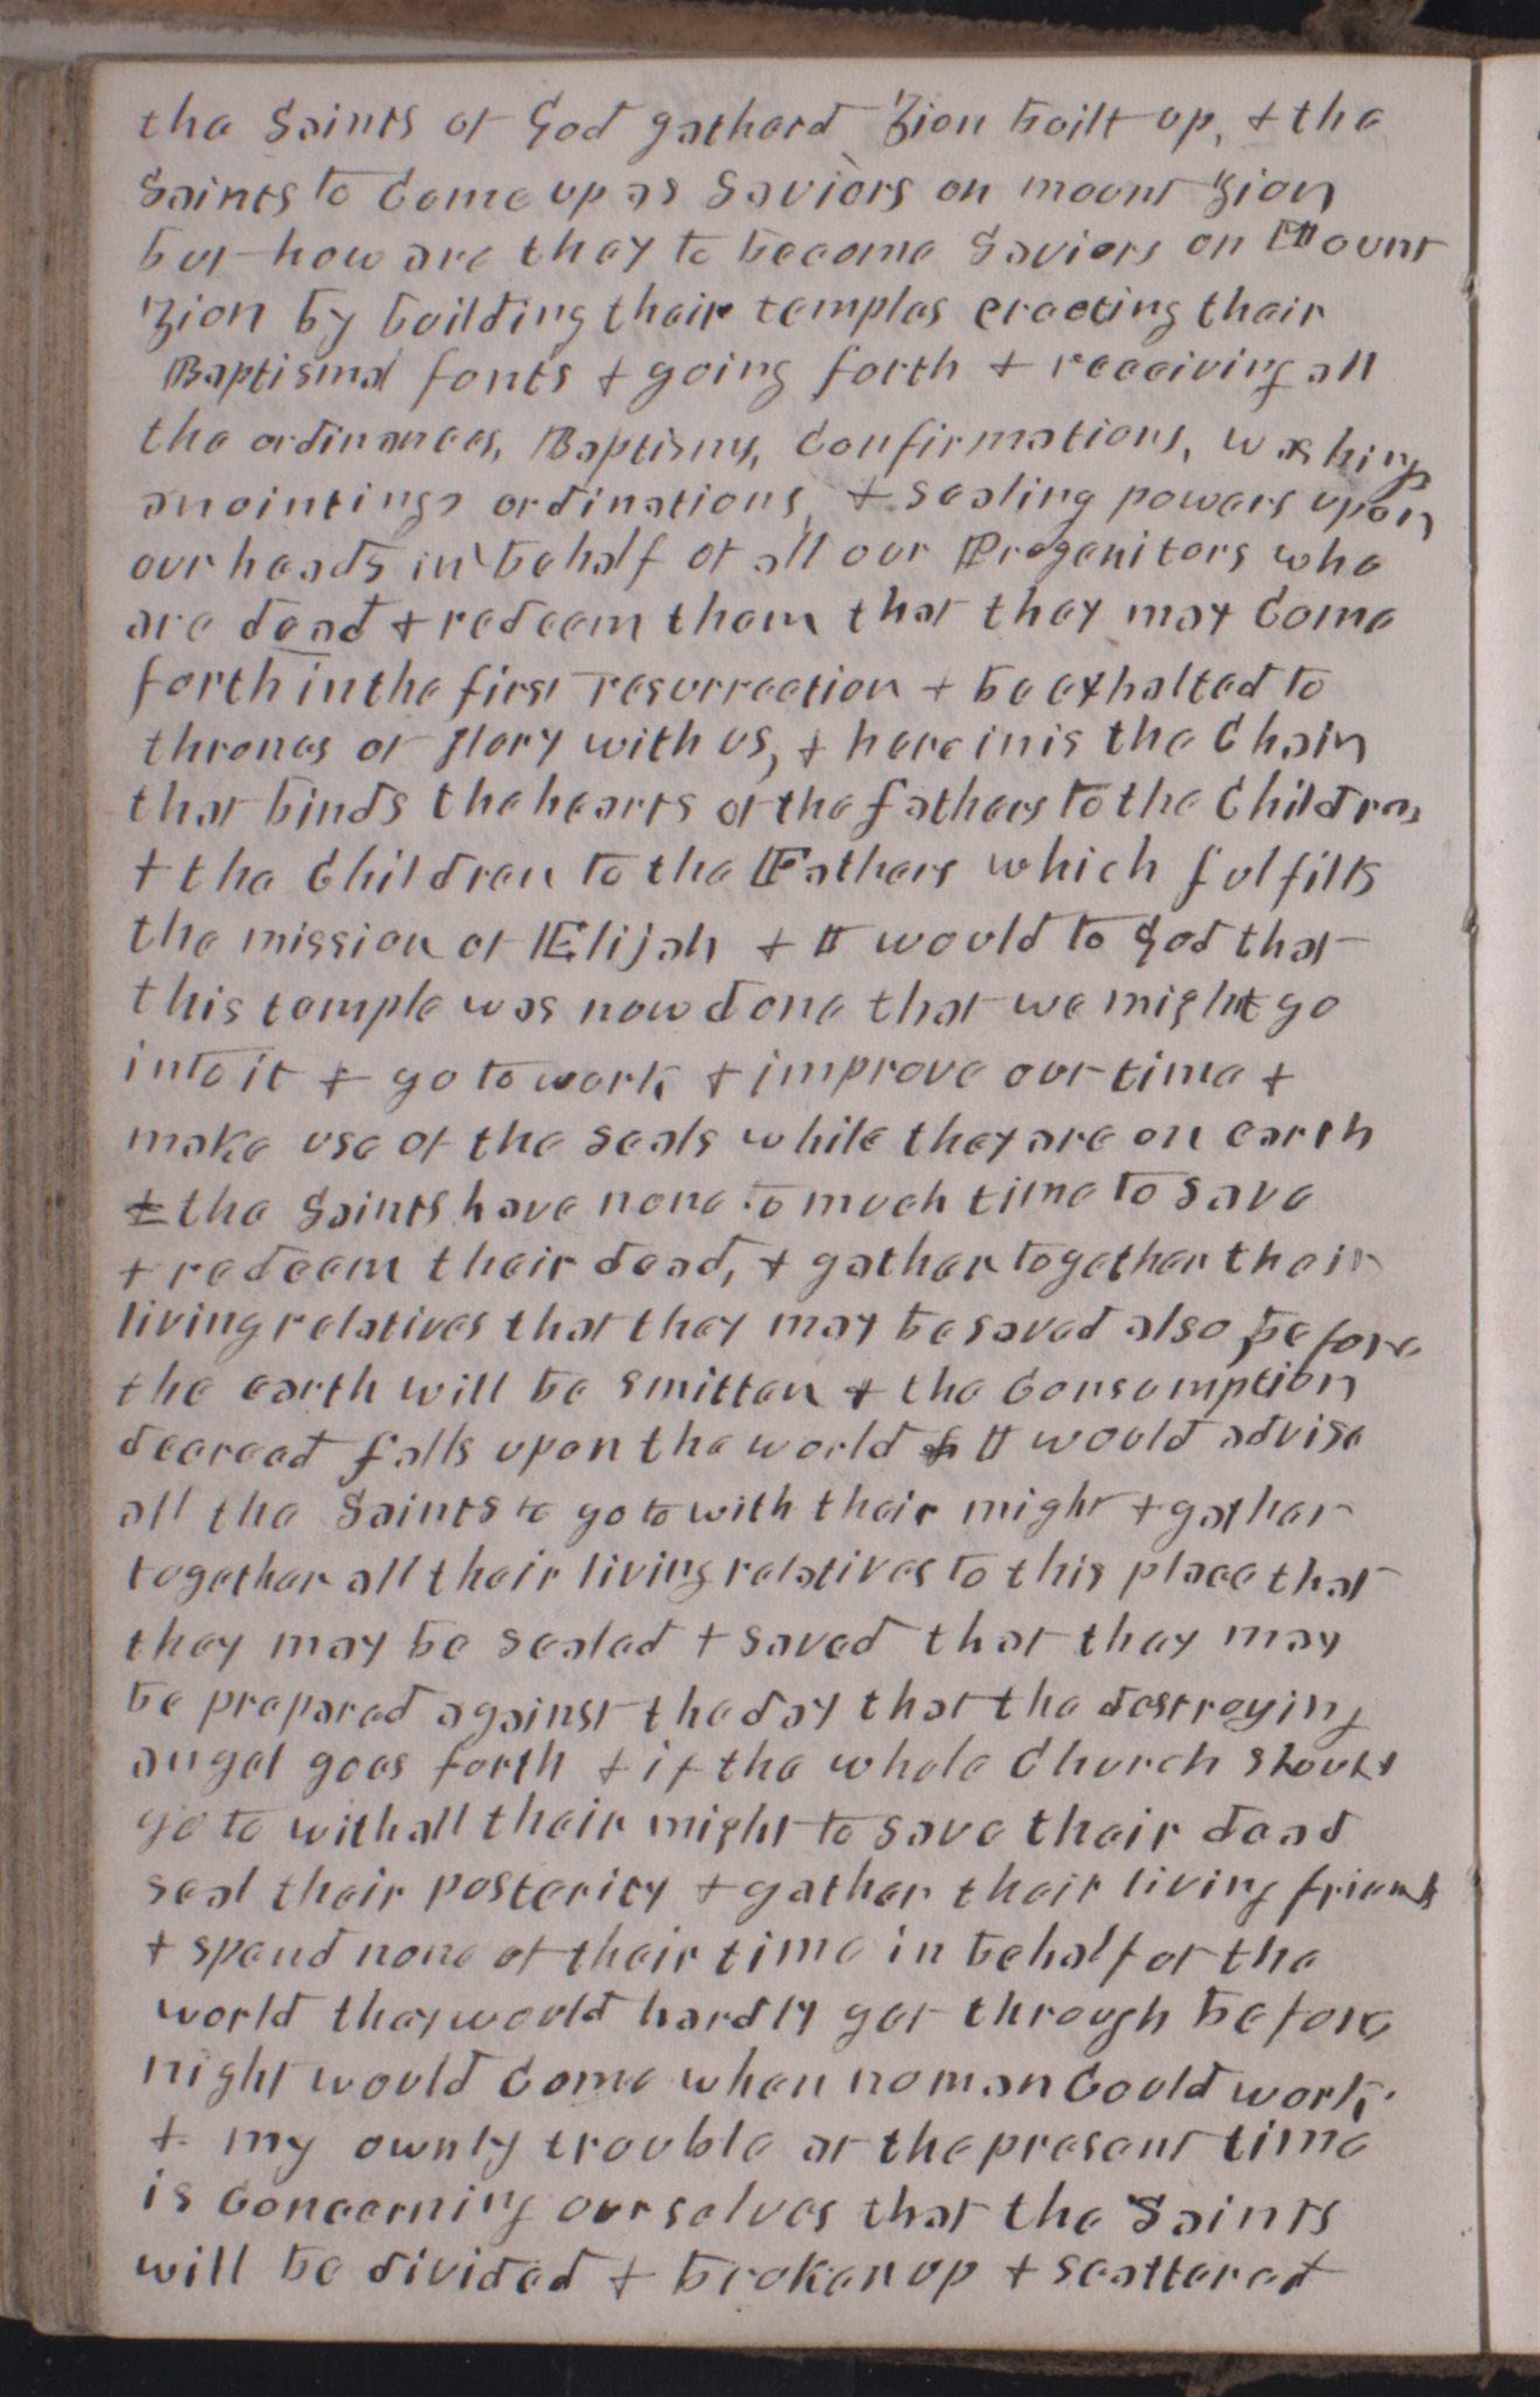 the Saints of God gatherd Zion built up, & the
Saints to Come up as Saviors on mount Zion
but how are they to become Saviors on Mount
Zion by building their temples erecting their
Baptismal fonts & going forth & receiving all
the ordinances, Baptisms, Confirmations, washings
anointings ordinations, & sealing powers upon
our heads in behalf of all our Progenitors who
are dead & redeem them that they may Come
forth in the first resurrection & be exhalted to
thrones of glory with us, & herein is the Chain
that binds the hearts of the fathers to the Children,
& the Children to the Fathers which fulfills
the mission of Elijah & I would to God that
this temple was now done that we might go
into it & go to work & improve our time &
make use of the seals while they are on earth
& the Saints have none to much time to save
& redeem their dead, & gather together their
living relatives that they may be saved also, before
the earth will be smitten & the Consumption
decreed falls upon the world & I would advise
all the Saints to go to with their might & gather
together all their living relatives to this place that
they may be sealed & saved that they may
be prepared against the day that the destroying
angel goes forth & if the whole Church should
go to with all their might to save their dead
seal their posterity & gather their living friends
& spend none of their time in behalf of the
world they would hardly get through before
night would Come when no man Could work
& my ownly trouble at the present time
is Concerning ourselves that the Saints
will be divided & broken up & scattered